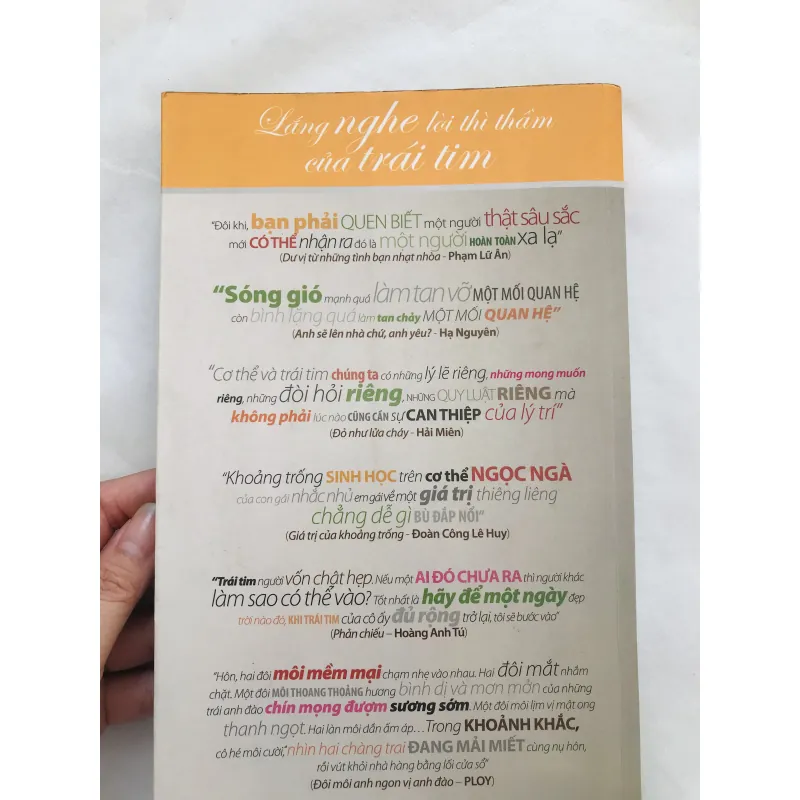 Lắng nghe lời thì thầm
của trái tim
"Đôi khi, bạn phải QUEN BIẾT một người thật sâu sắc
mới CÓ THỂ nhận ra đó là một người HOÀN TOÀN xa lạ"
(Dư vị từ những tình bạn nhạt nhòa - Phạm Lữ Ân)
"Sóng gió mạnh quá làm tan vỡ MỘT MỐI QUAN HỆ
còn bình lặng quá làm tan chảy MỘT MỐI QUAN HỆ"
(Anh sẽ lên nhà chứ, anh yêu? - Hạ Nguyên)
"Cơ thể và trái tim chúng ta có những lý lẽ riêng, những mong muốn
riêng, những đòi hỏi riêng, NHỮNG QUY LUẬT RIÊNG mà
không phải lúc nào CŨNG CẦN sự CAN THIỆP của lý trí"
(Đỏ như lửa cháy - Hải Miên)
"Khoảng trống SINH HỌC trên cơ thể NGỌC NGÀ
của con gái nhắc nhủ em gái về một giá trị thiêng liêng
chẳng dễ gì BÙ ĐẮP NỔI"
(Giá trị của khoảng trống - Đoàn Công Lê Huy)
"Trái tim người vốn chật hẹp. Nếu một AI ĐÓ CHƯA RA thì người khác
làm sao có thể vào? Tốt nhất là hãy để một ngày đẹp
trời nào đó, KHI TRÁI TIM của cô ấy đủ rộng trở lại, tôi sẽ bước vào"
(Phản chiếu – Hoàng Anh Tú)
"Hôn, hai đôi môi mềm mại chạm nhẹ vào nhau. Hai đôi mắt nhắm
chặt. Một đôi MÔI THOANG THOẢNG hương bình dị và mơn mởn của những
trái anh đào chín mọng đượm sương sớm. Một đôi môi lịm vị mật ong
thanh ngọt. Hai làn môi dần ấm áp... Trong KHOẢNH KHẮC,
cô hé môi cười," nhìn hai chàng trai ĐANG MẢI MIẾT cùng nụ hôn,
rồi vút khỏi nhà hàng bằng lối cửa sổ"
(Đôi môi anh ngon vị anh đào – PLOY)